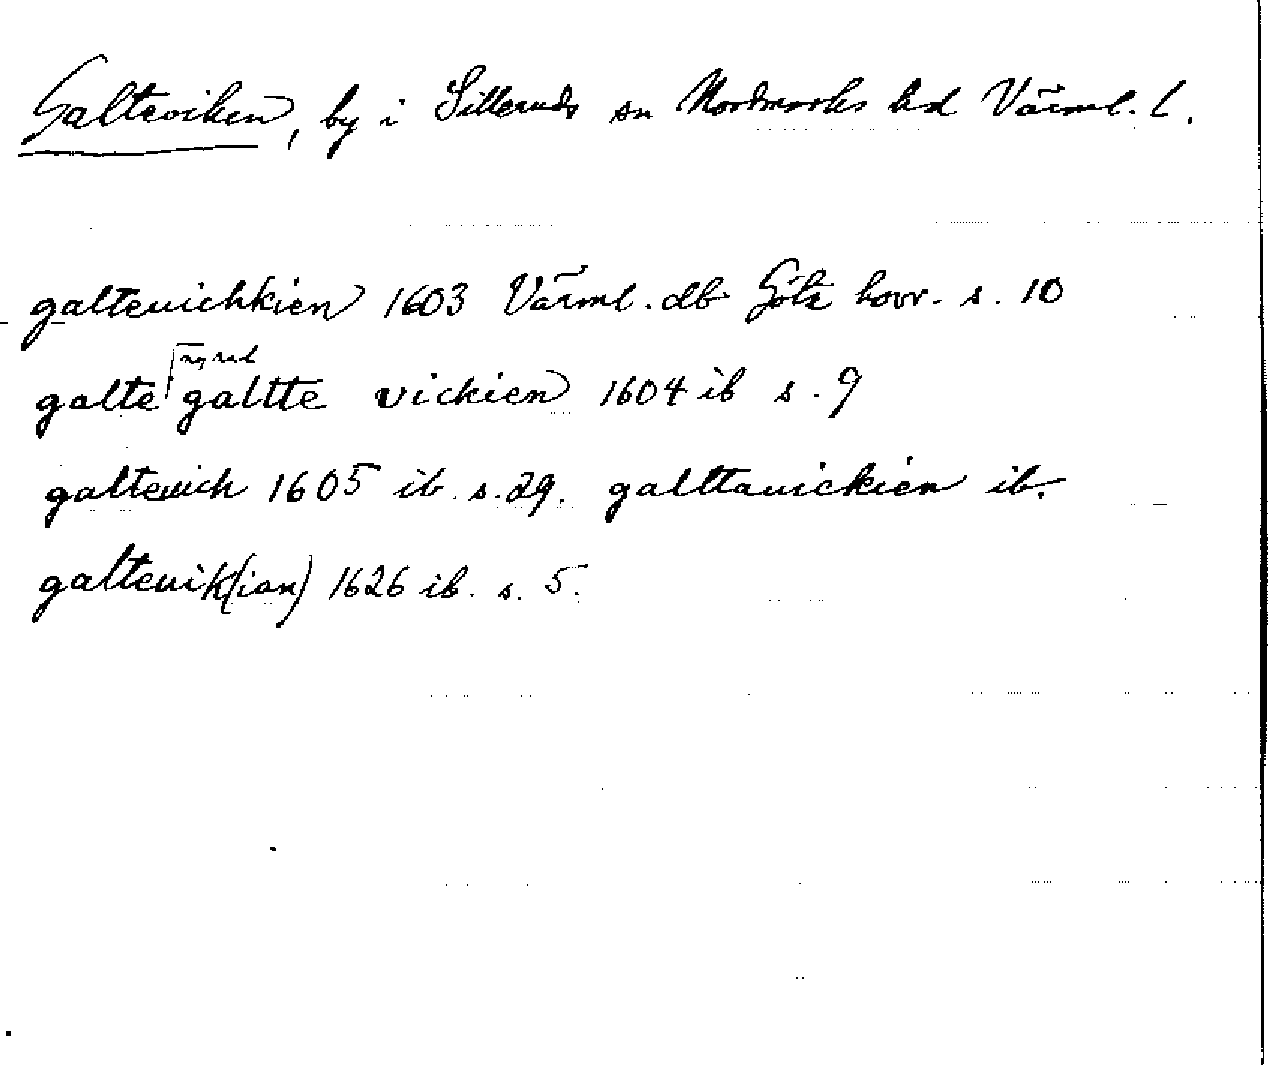 Galteviken, by i Silleruds sn Nordmarks hd Värml. l.
galteuichkien 1603 Värml. db Göta hovr. s. 10
galte ⌈ny rad galtte vickien 1604 ib s. 9
galteuich 1605 ib. s. 29. galttauickien ib.
galteuik(ian) 1626 ib. s. 5.